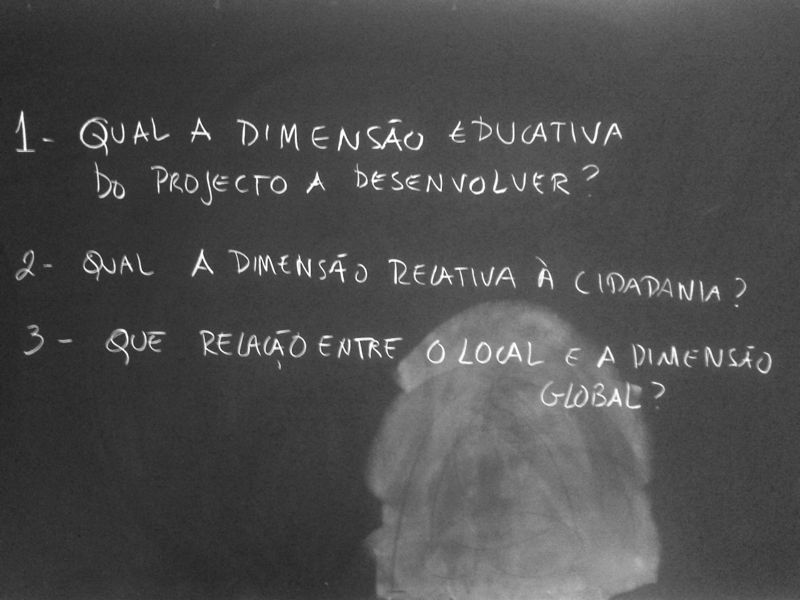 1- QUAL A DIMENSÃO EDUCATIVA
DO PROJECTO A DESENVOLVER?
2- QUAL A DIMENSÃO RELATIVA À CIDADANIA?
3- QUE RELAÇÃO ENTRE O LOCAL E A DIMENSÃO
GLOBAL?